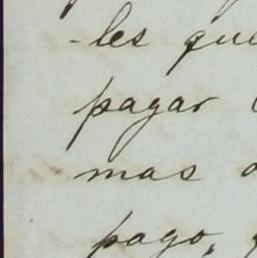 -les que
pagar
mas
pago,